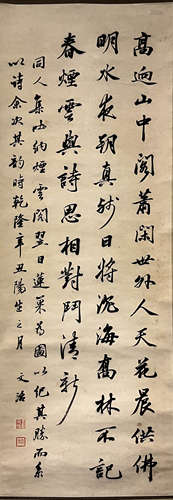 高迥山中閣蕭閑世外人天花晨供佛
明水夜朝真殘日將沉海高林不記
春煙雲與詩思相對鬥清新
同人集納煙雲閣翌日蓮巢為圖以紀其勝而系
以詩余次其韵時乾隆辛丑陽生之月 文治